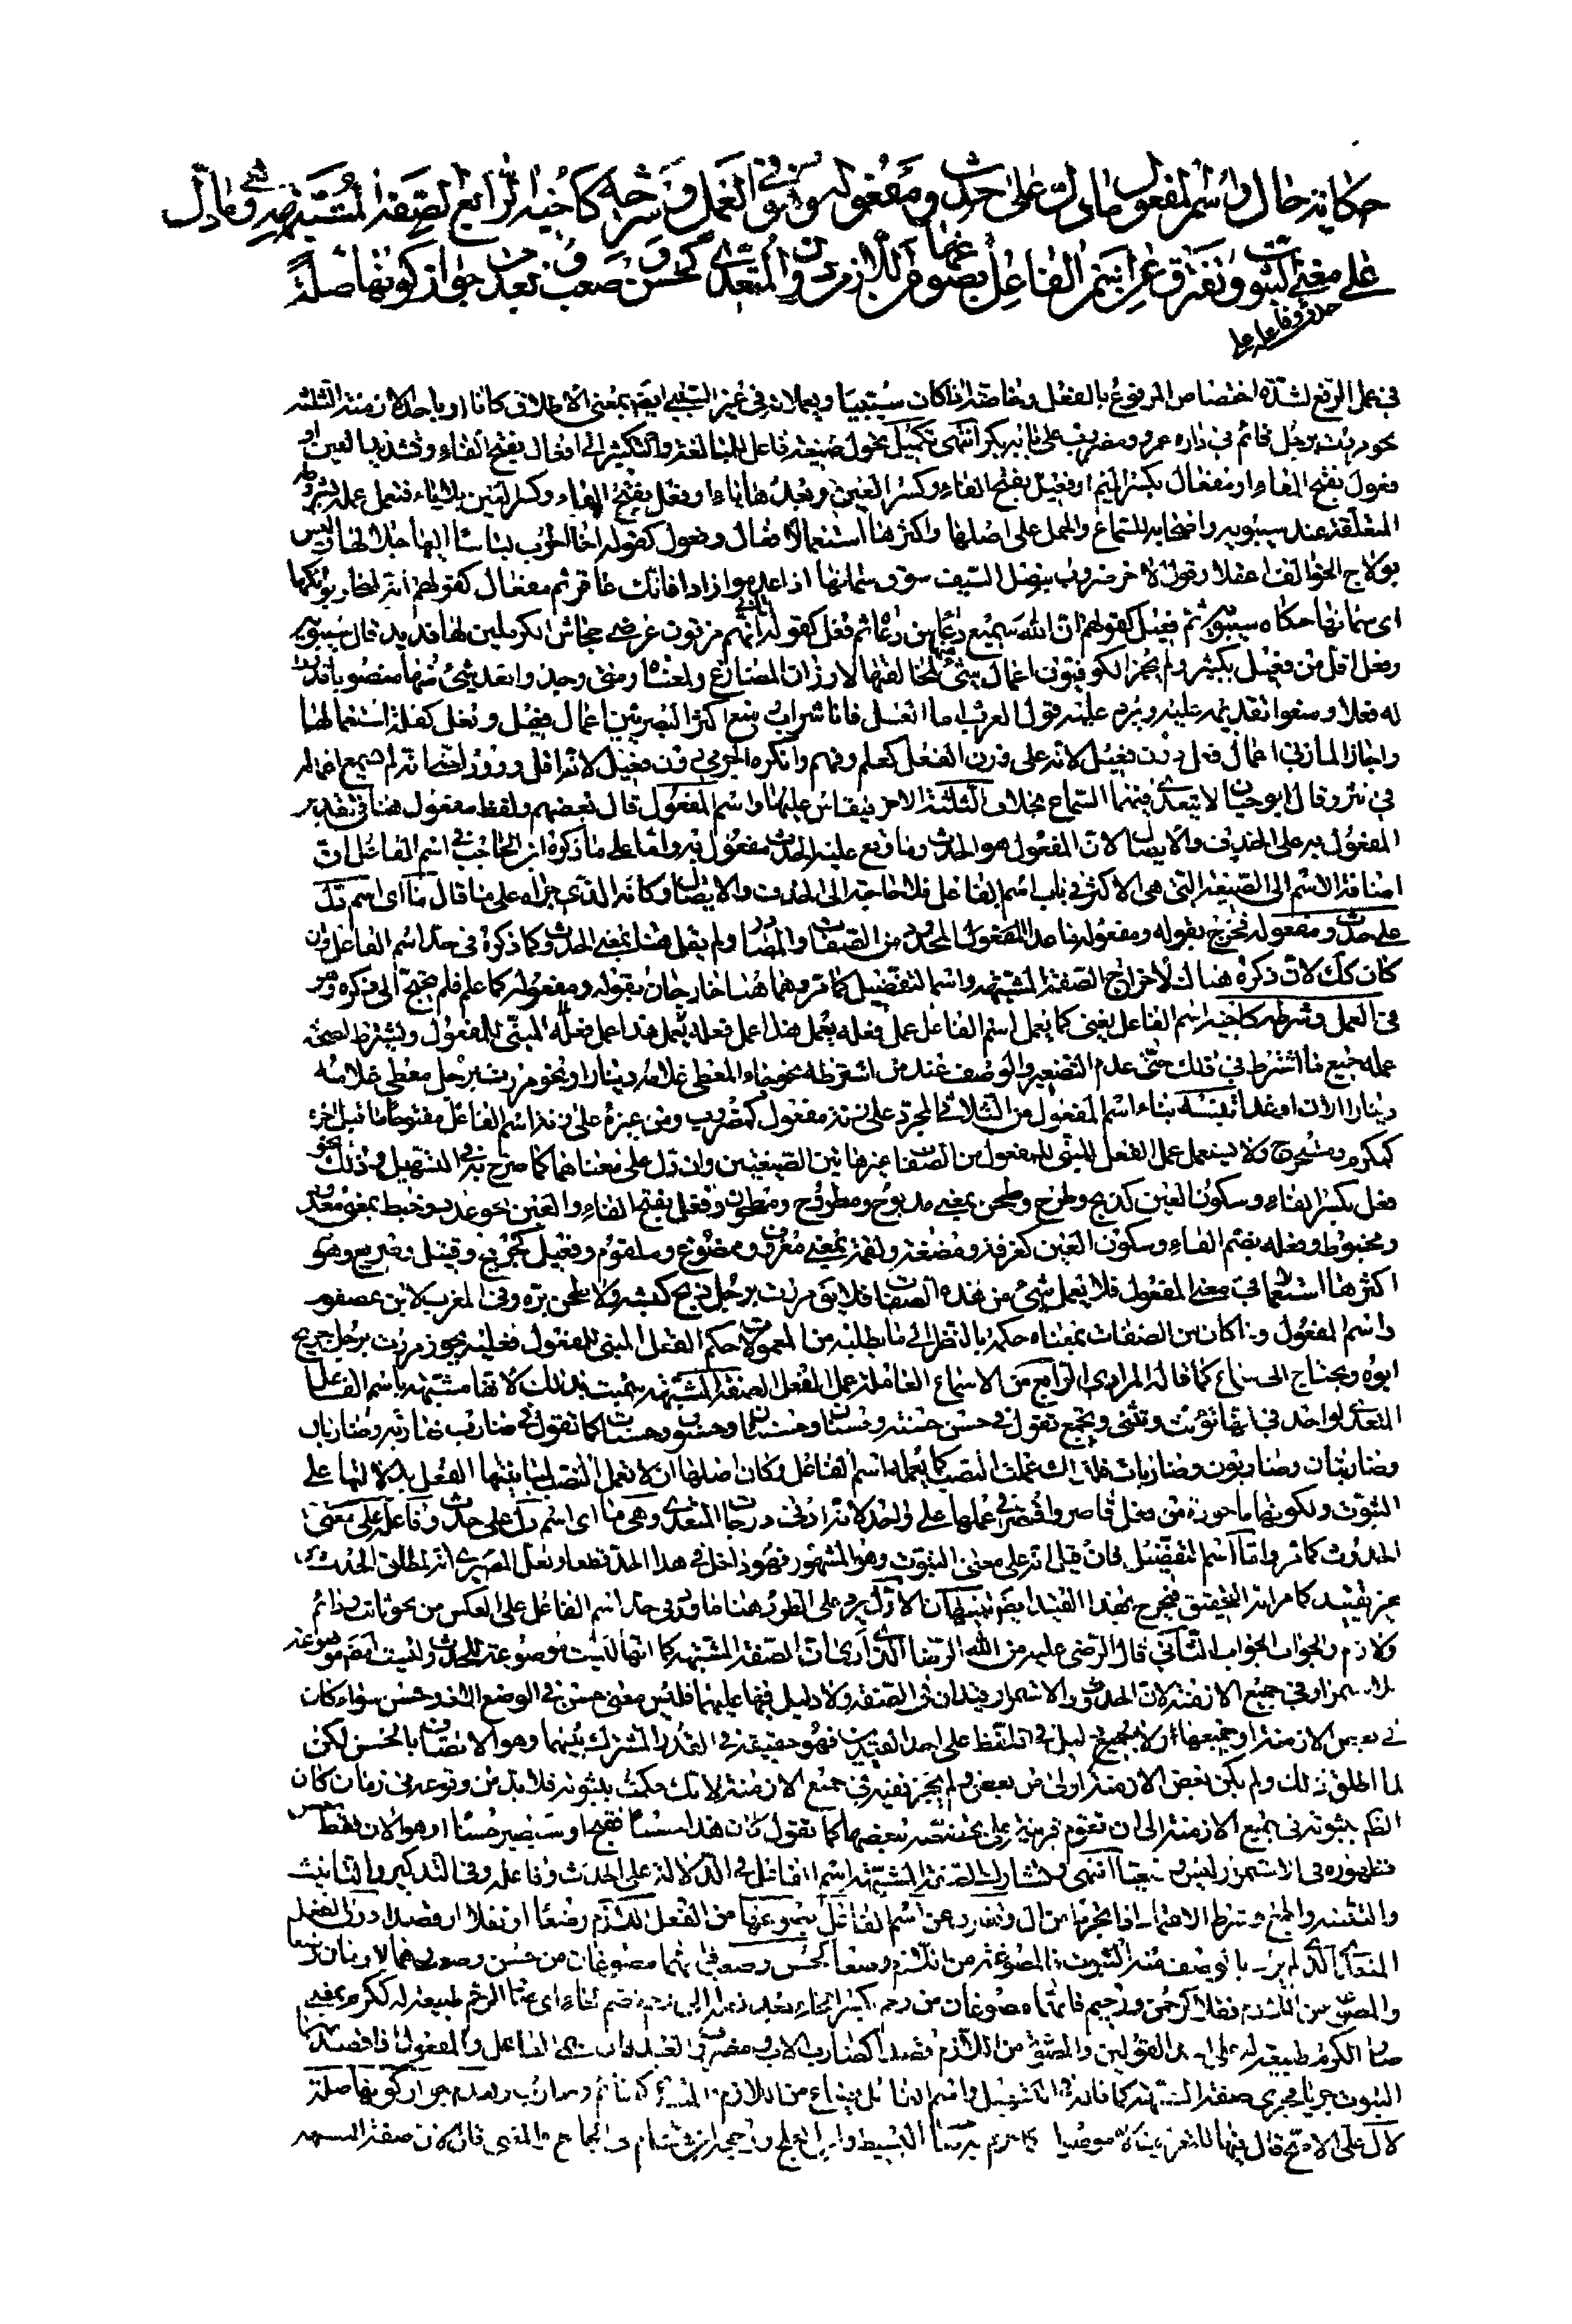 حكاية حال واسم المفعول ما دل على حدث ومفعوله وهو في العمل وشرطه كاخيه الرابع الصفة المشبهة وهي ما دل
على معنى الثبوت وتفترق عن اسم الفاعل بصوغها من اللازم دون المتعدي كحسن وصعب وبعدم جواز كونها صلة لال
في عمل الرفع لشدة اختصاص المرفوع بالفعل وخاصة اذا كان سببيا ويعملان في غير السببي ايضا بمعنى الاطلاق كانا او باحد الازمنة الثلثة
نحو مررت برجل قائم في داره عمرو ومضروب على بابه بكر انتهى تكميل يحول صيغة فاعل للمبالغة والتكثير الى فعال بفتح الفاء وتشديد العين او
فعول بفتح الفاء او مفعال بكسر الميم او فعيل بفتح الفاء وكسر العين وبعدها ياء او فعل بفتح الفاء وكسر العين بلا ياء فتعمل عمله بشروطه
المتقدمة عند سيبويه واصحابه للسماع والحمل على اصلها واكثرها استعمالا فعال وفعول كقوله اخا الحرب لباسا اليها جلالها وليس
بولاج الخوالف اعقلا وقول الاخر ضروب بنصل السيف سوق سمانها اذا عدموا زادا فانك عاقر ثم مفعال كقولهم انه لمنحار بوائكها
اي سمانها حكاه سيبويه ثم فعيل كقولهم ان الله سميع دعاء من دعاه ثم فعل كقوله اتاني انهم مزقون عرضي جحاش الكرملين لها فديد قال سيبويه
وفعل اقل من فعيل بكثير ولم يجز الكوفيون اعمال شيء منها لمخالفتها لاوزان المضارع ولمعناه ومتى وجدوا بعد شيء منها منصوبا قدروا
له فعلا ومنعوا تقديمه عليه ويرد عليه قول العرب اما العسل فانا شراب ومنع اكثر البصريين اعمال فعيل وفعل لقلة استعمالهما
واجاز المازني اعمال فعل دون فعيل لانه على وزن الفعل كعلم وفهم وانكره الجرمي دون فعيل لانه اقل ورودا حتى انه لم يسمع اعماله
في نثر وقال ابو حيان لا يتعدى فيهما السماع بخلاف الثلثة الاخر فيقاس عليها واسم المفعول قال بعضهم ولفظ مفعول هنا في تقدير
المفعول به على الحذف والايصال لان المفعول هو الحدث وما وقع عليه الحدث مفعول به واما على ما ذكره ابن الحاجب في اسم الفاعل ان
اضافة الاسم الى الصيغة التي هي الاكثر في باب اسم الفاعل فلا حاجة الى الحذف والايصال وكانه الذي جراه على ما قال ما اي اسم دل
على حدث ومفعوله فخرج بقوله ومفعوله ما عدا المفعول المحدود من الصفات والمصادر ولم يقل هنا بمعنى الحدوث كما ذكره في حد اسم الفاعل وان
كان كذلك لان ذكره هناك لاخراج الصفة المشبهة واسم التفضيل كما مر وهما هنا خارجان بقوله ومفعوله كما علم فلم يحتج الى ذكره وهو
في العمل وشرطه كاخيه اسم الفاعل يعني كما يعمل اسم الفاعل عمل فعله يعمل هذا عمل فعله المبني للمفعول ويشترط لصحة
عمله جميع ما اشترط في ذلك حتى عدم التصغير والوصف عند من اشترطه نحو جاء المعطى غلامه دينارا ونحو مررت برجل معطى غلامه
دينارا الان او غدا تنبيه بناء اسم المفعول من الثلاثي المجرد على زنة مفعول كمضروب ومن غيره على زنة اسم الفاعل مفتوحا ما قبل اخره
كمكرم ومستخرج ولا يعمل عمل الفعل المبني للمفعول من الصفات غير هاتين الصيغتين وان دل على معناهما كما صرح به في التسهيل وذلك نحو
فعل بكسر الفاء وسكون العين كذبح وطرح وطحن بمعنى مذبوح ومطروح ومطحون وفعل بفتح الفاء والعين نحو عدد وخبط بمعنى معدود
ومخبوط وفعلة بضم الفاء وسكون العين كغرفة ومضغة ولقمة بمعنى مغروف وممضوغ وملقوم وفعيل كجريح وقتيل وصريع وهو
اكثرها استعمالا في معنى المفعول فلا يعمل شيء من هذه الصفات فلا يق مررت برجل ذبح كبشه ولا طحن بره وفي المغرب لابن عصفور
واسم المفعول وما كان من الصفات بمعناه حكمه بالنظر الى ما يطلبه من المعمولات حكم الفعل المبني للمفعول فعليه يجوز مررت برجل جريح
ابوه ويحتاج الى سماع كما قاله المرادي الرابع من الاسماء العاملة عمل الفعل الصفة المشبهة سميت بذلك لانها مشبهة باسم الفاعل
المتعدي لواحد في انها تؤنث وتثنى وتجمع تقول في حسن حسنة وحسنان وحسنتان وحسنون وحسنات كما تقول في ضارب ضاربة وضاربان
وضاربتان وضاربون وضاربات فلذلك عملت النصب كما يعمله اسم الفاعل وكان اصلها ان لا تعمل النصب لمباينتها الفعل بدلالتها على
الثبوت ولكونها ماخوذة من فعل قاصر واقتصر في عملها على واحد لانه ادنى درجات المتعدي وهي ما اي اسم دل على حدث وفاعله على معنى
الحدوث كما مر واما اسم التفضيل فان قيل انه على معنى الثبوت وهو المشهور فهو داخل في هذا الحد قطعا ونقل المصري انه لمطلق الحدث
بغير تقييد كما مر انه التحقيق فيخرج بهذا القيد ايضا تنبيهان الاول يرد على الطرد هنا ما ورد في حد اسم الفاعل على العكس من نحو ثابت ودائم
ولازم والجواب الجواب الثاني قال الرضي عليه من الله الرضا الذي ارى ان الصفة المشبهة كما انها ليست موضوعة للحدوث وليست ايضا موضوعة
للاستمرار في جميع الازمنة لان الحدوث والاستمرار قيدان في الصفة ولا دليل فيها عليهما فليس معنى حسن في الوضع الا ذو حسن سواء كان
في بعض الازمنة او جميعها ولا دليل في اللفظ على احد القيدين فهو حقيقة في القدر المشترك بينهما وهو الاتصاف بالحسن لكن
لما اطلق ذلك ولم يكن بعض الازمنة اولى من بعض ولم يجز نفيه في جميع الازمنة لانك حكمت بثبوته فلا بد من وقوعه في زمان كان
الظاهر ثبوته في جميع الازمنة الى ان تقوم قرينة على تخصيصه ببعضها كما تقول كان هذا حسنا فقبح او سيصير حسنا او هو الان فقط حسن
فظهوره في الاستمرار ليس وضعيا انتهى وتشارك الصفة المشبهة اسم الفاعل في الدلالة على الحدث وفاعله وفي التذكير والتانيث
والتثنية والجمع وشرط الاعتماد اذا تجردا من ال وتنفرد عن اسم الفاعل بصوغها من الفعل اللازم وضعا او نقلا او قصدا دون الفعل
المتعدي الذي لم يرد بالوصف منه الثبوت فالمصوغة من اللازم وضعا كحسن وصعب فانهما مصوغان من حسن وصعب وهما لازمان وضعا
والمصوغ من اللازم نقلا كرحمن ورحيم فانهما مصوغان من رحم بكسر الحاء بعد نقله الى رحم بضم الحاء
النسبوت جريا مجرى الصفة المشبهة كما قاله في التسهيل